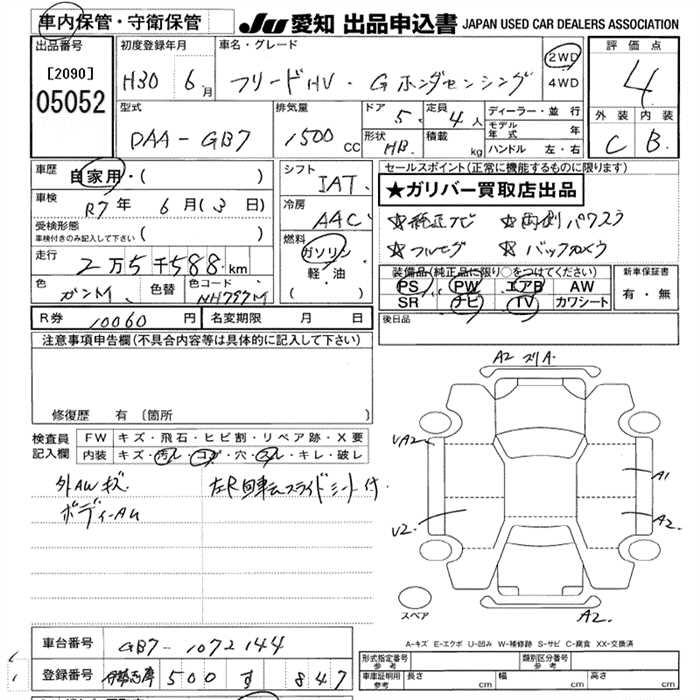 車内保管・守衛保管 JU 愛知 出品申込書 JAPAN USED CAR DEALERS ASSOCIATION
出品番号 初度登録年月 車名・グレード 評価点
[2090] H30 6月 フリードHV・Gホンダセンシング 2WD 4
05052 4WD
型式 排気量 ドア 定員 ディーラー・並行 外装 内装
DAA-GB7 1500cc 5 4人 モデル年式 年 C B
形状 HB 積載 kg ハンドル 左・右
車歴 自家用・( ) シフト IAT セールスポイント(正常に機能するものに限ります)
車検 R7年 6月(3日) 冷房 AAC ★ガリバー買取店出品
受検形態 ☆純正ナビ ☆両側パワスラ
車検付きのみ記入して下さい ( ) 燃料 ☆フルセグ ☆バックカメラ
走行 2万5千588km ガソリン 装備品(純正品に限り○をつけてください) 新車保証書
軽・油 PS PW エアB AW 有・無
色 ガンM 色替 色コード NH797M ( ) SR ナビ TV カワシート
R券 10060円 名変期限 月 日 後日品
注意事項申告欄(不具合内容等は具体的に記入して下さい)
A2 スリA.
修復歴 有 [箇所
検査員 FW キズ・飛石・ヒビ割・リペア跡・X要
記入欄 内装 キズ・汚レ・コゲ・穴・スレ・キレ・破レ
UA2
外AWキズ 左R回転スライドシート付 A1
ボディーAU
U2 A2
スペア A2
A-キズ E-エクボ U-凹み W-補修跡 S-サビ C-腐食 XX-交換済
車台番号 GB7-1072144
形式指定番号 参考 類別区分番号 参考
登録番号 伊勢志摩 500 す 847
車庫証明用 参考 長さ cm 幅 cm 高さ cm